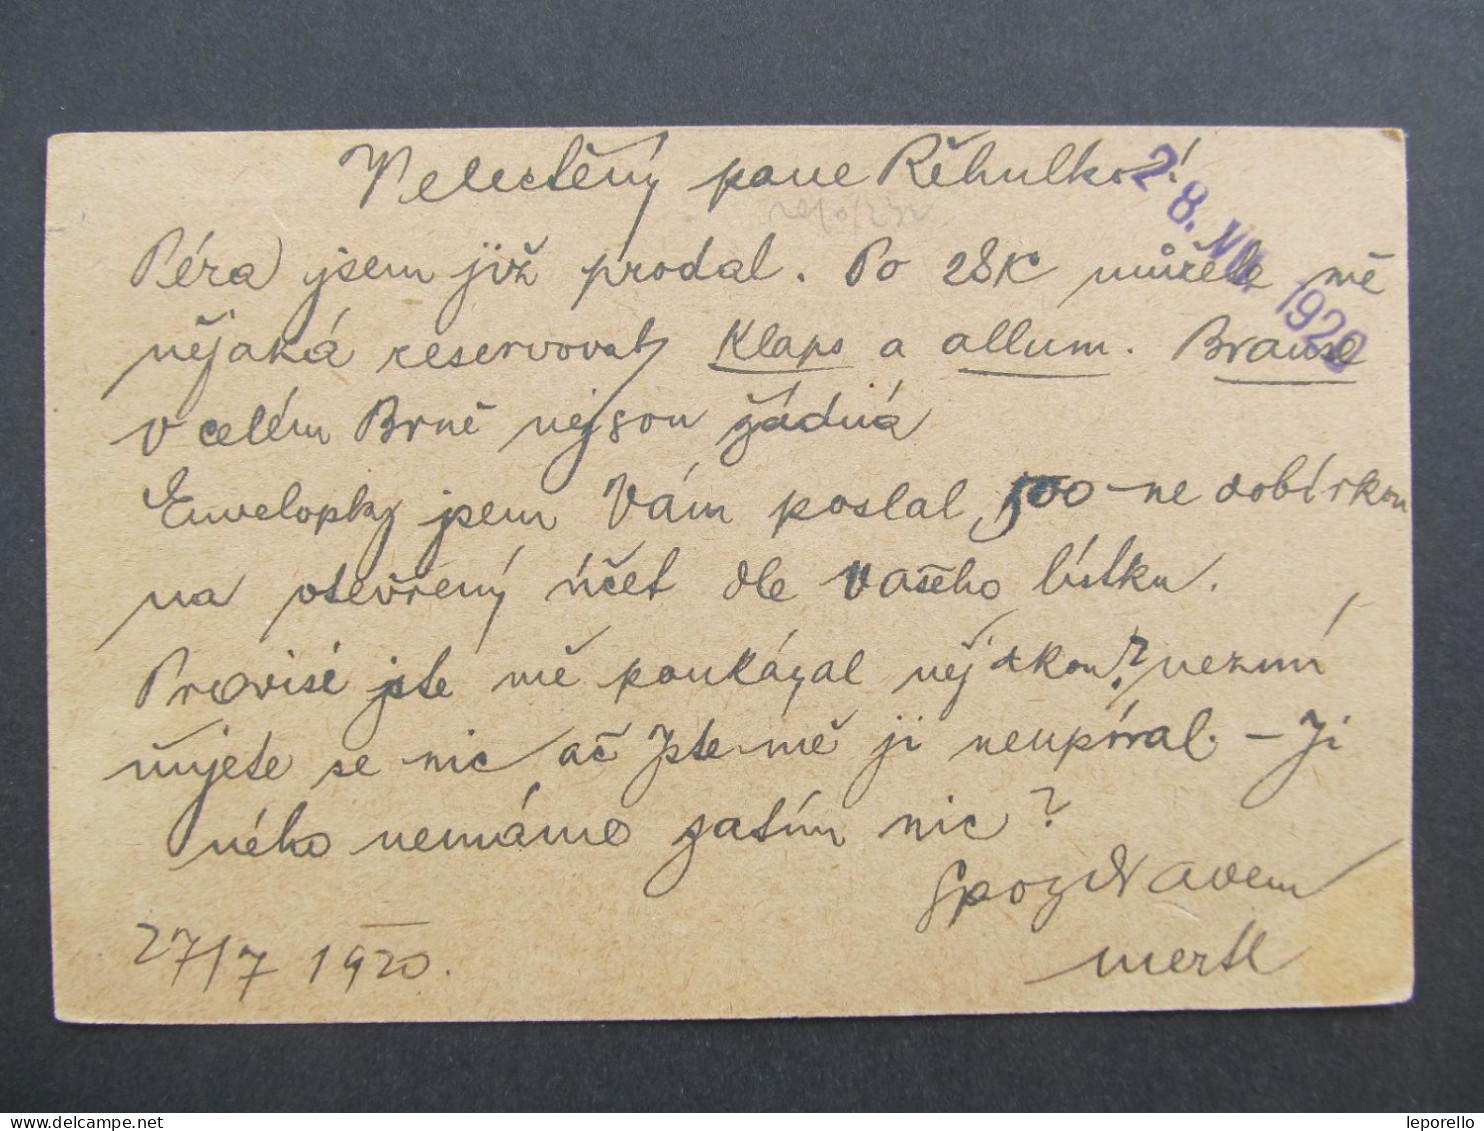 Velectěný pane Řěhulko!
28. VII. 1920
Péra jsem již prodal. Po 28K můžete mě
nějaká reservovat Klaps a allum. Brause
v celém Brně nejsou žádná
Envelopky jsem Vám poslal 500-ne dobírkou
na otevřený účet dle vašého lístku.
Provisi jste mě poukázal nějakou?
nujete se nic ač Jste mě ji neupíral. – Ji
ného nemámo zatím nic?
Spozdravem
mertl
27/7 1920.
leporello